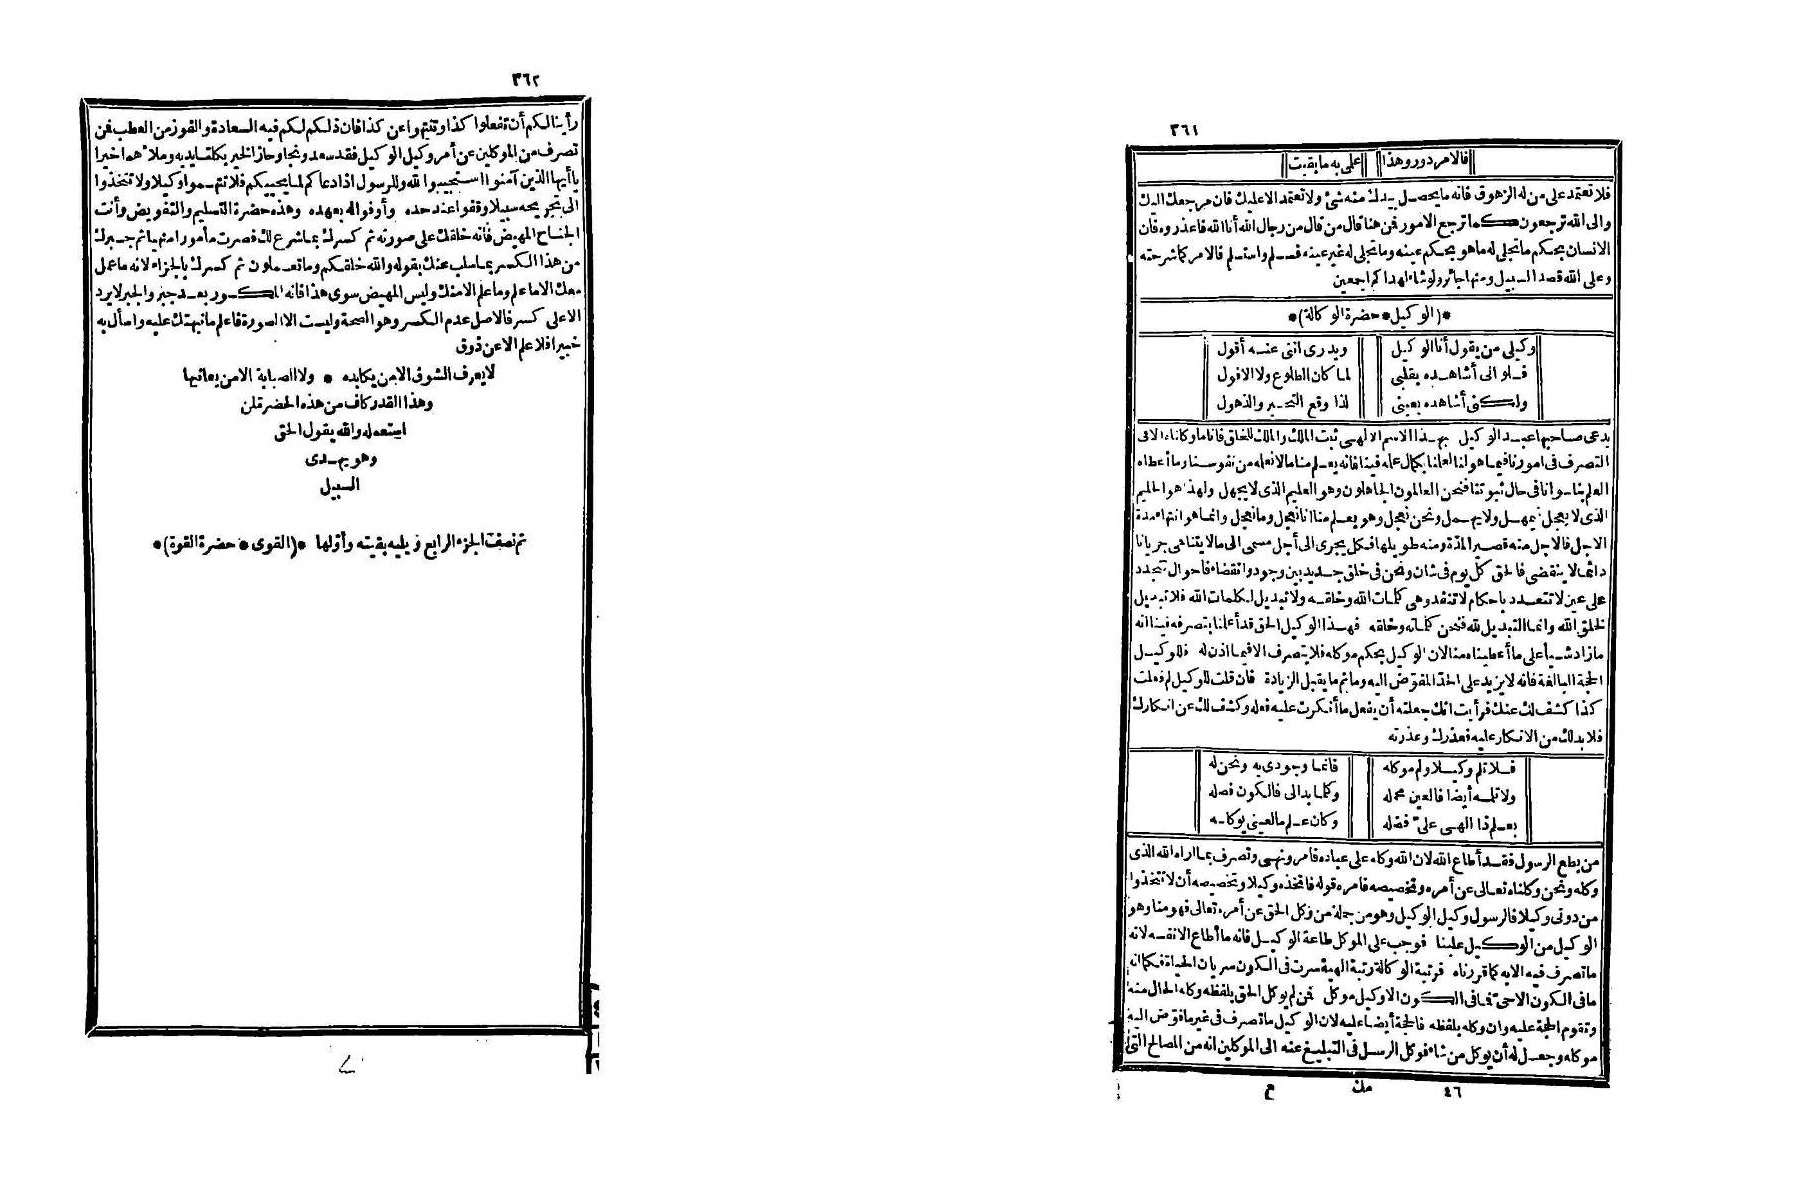 ٣٦١
فالامر دور وهذا على به ما بقيت
فلا تعتمد على من له الزهوق فانه ما يحصل بيدك منه شئ ولا تعتمد الا عليك فان مرجعك اليك
والى الله ترجعون كما ترجع الامور فمن هنا قال من قال من رجال الله أنا الله فاعذروه فان
الانسان بحكم ما تجلى له ما هو بحكم عينه وما تجلى له غير عينه فسلم واستسلم فالامر كما شرحته
وعلى الله قصد السبيل ومنها جائر ولو شاء لهداكم اجمعين
*(الوكيل * حضرة الوكالة)*
وكيلى من يقول أنا الوكيل ويدرى اننى عنه أقول
فلو انى أشاهده بقلبى لما كان الطلوع ولا الافول
ولكنى أشاهده بعينى لذا وقع التحير والذهول
يدعى صاحبها عبد الوكيل بهذا الاسم الالهى ثبت الملك والملك للخلق فاناما وكلناه الا فى
التصرف فى امورنا فيما هو لنا لعلمنا بكمال علمه فينا فانه يعلم منا ما لا نعلمه من نفوسنا وما أعطاه
العلم بنا سوانا فى حال ثبوتنا فنحن العالمون الجاهلون وهو العليم الذى لا يجهل ولهذا هو الحليم
الذى لا يعجل يمهل ولا يهمل ونحن نعجل وهو يعلم منا انا نعجل وما نعجل وانما هو انتهاء مدة
الاجل فالاجل منه قصير المدة ومنه طويلها فكل يجرى الى أجل مسمى الى ما لا يتناهى جريانا
دائما لا ينقضى فالحق كل يوم فى شان ونحن فى خلق جديد بين وجود وانقضاء فأحوال تتجدد
على عين لا تتعدد باحكام لا تنفد وهى كلمات الله وخلقه ولا تبديل لكلمات الله فلا تبديل
لخلق الله وانما التبديل لله فنحن كلماته وخلقه فهذا الوكيل الحق قد أعلمنا بتصرفه فينا انه
ما زاد شيأ على ما أعطيناه منا لان الوكيل بحكم موكله فلا يتصرف الا فيما اذن له فللوكيل
الحجة البالغة فانه لا يزيد على الحد المفوض اليه وما ثم ما يقبل الزيادة فان قلت للوكيل لم فعلت
كذا كشف لك عنك فرأيت انك جعلته أن يفعل ما أنكرت عليه فعله وكشف لك عن انكارك
فلا بد لك من الانكار عليه فعذرك وعذرته
فلا تلم وكيلا ولم موكله فانما وجودى به ونحن له
ولا تلمه أيضا فالعين محمله وكلما بدا لى فالكون فصله
بعلم ذا الهى علىّ فضله وكان علم ما لعينى يوكله
من يطع الرسول فقد أطاع الله لان الله وكله على عباده فامر ونهى وتصرف بما اراه الله الذى
وكله ونحن وكلناه تعالى عن أمره وتخصيصه فامره قوله فاتخذه وكيلا وتخصيصه أن لا تتخذوا
من دونى وكيلا فالرسول وكيل الوكيل وهو من جملة من وكل الحق عن أمره تعالى فهو منا وهو
الوكيل من الوكيل علينا فوجب على الموكل طاعة الوكيل فانه ما أطاع الا نفسه لانه
ما تصرف فيه الا به كما قررناه فرتبة الوكالة رتبة الهية سرت فى الكون سريان الحياة فكما انه
ما فى الكون الا حى فما فى الكون الا وكيل موكل فمن لم يوكل الحق بلفظه وكله الحال منه
وتقوم الحجة عليه وان وكله بلفظه فالحجة أيضا عليه لان الوكيل ما تصرف فى غير ما فوض اليه
موكله وجعل له أن يوكل من شاء فوكل الرسل فى التبليغ عنه الى الموكلين انه من المصالح التى
٤٦ مك ع
٣٦٢
رأينا لكم أن تفعلوا كذا وتنتهوا عن كذا فان ذلكم لكم فيه السعادة والفوز من العطب فمن
تصرف من الموكلين عن أمر وكيل الوكيل فقد سعد ونجا وحاز الخير بكلتا يديه وملأهما خيرا
يا أيها الذين آمنوا استجيبوا لله وللرسول اذا دعاكم لما يحييكم فلا تتهموا وكيلا ولا تتخذوا
الى تجريحه سبيلا وقفوا عند حده وأوفوا له بعهده وهذه حضرة التسليم والتفويض وأنت
الجناح المهيض فانه خلقك على صورته ثم كسرك بما شرع لك فصرت مأمورا منهيا ثم جبرك
من هذا الكسر بما سلب عنك بقوله والله خلقكم وما تعملون ثم كسرك بالجزاء لانه ما عمل
معك الا ما علم وما علم الا منك وليس المهيض سوى هذا فانه المكسور بعد جبر والجبر لا يرد
الا على كسر فالاصل عدم الكسر وهو الصحة وليست الا الصورة فاعلم ما نبهتك عليه واسأل به
خبيرا فلا علم الا عن ذوق
لا يعرف الشوق الا من يكابده * ولا الصبابة الا من يعانيها
وهذا القدر كاف من هذه الحضرة لمن
استعمله والله يقول الحق
وهو يهدى
السبيل
تم نصف الجزء الرابع ويليه بقيته وأولها *(القوى * حضرة القوة)*